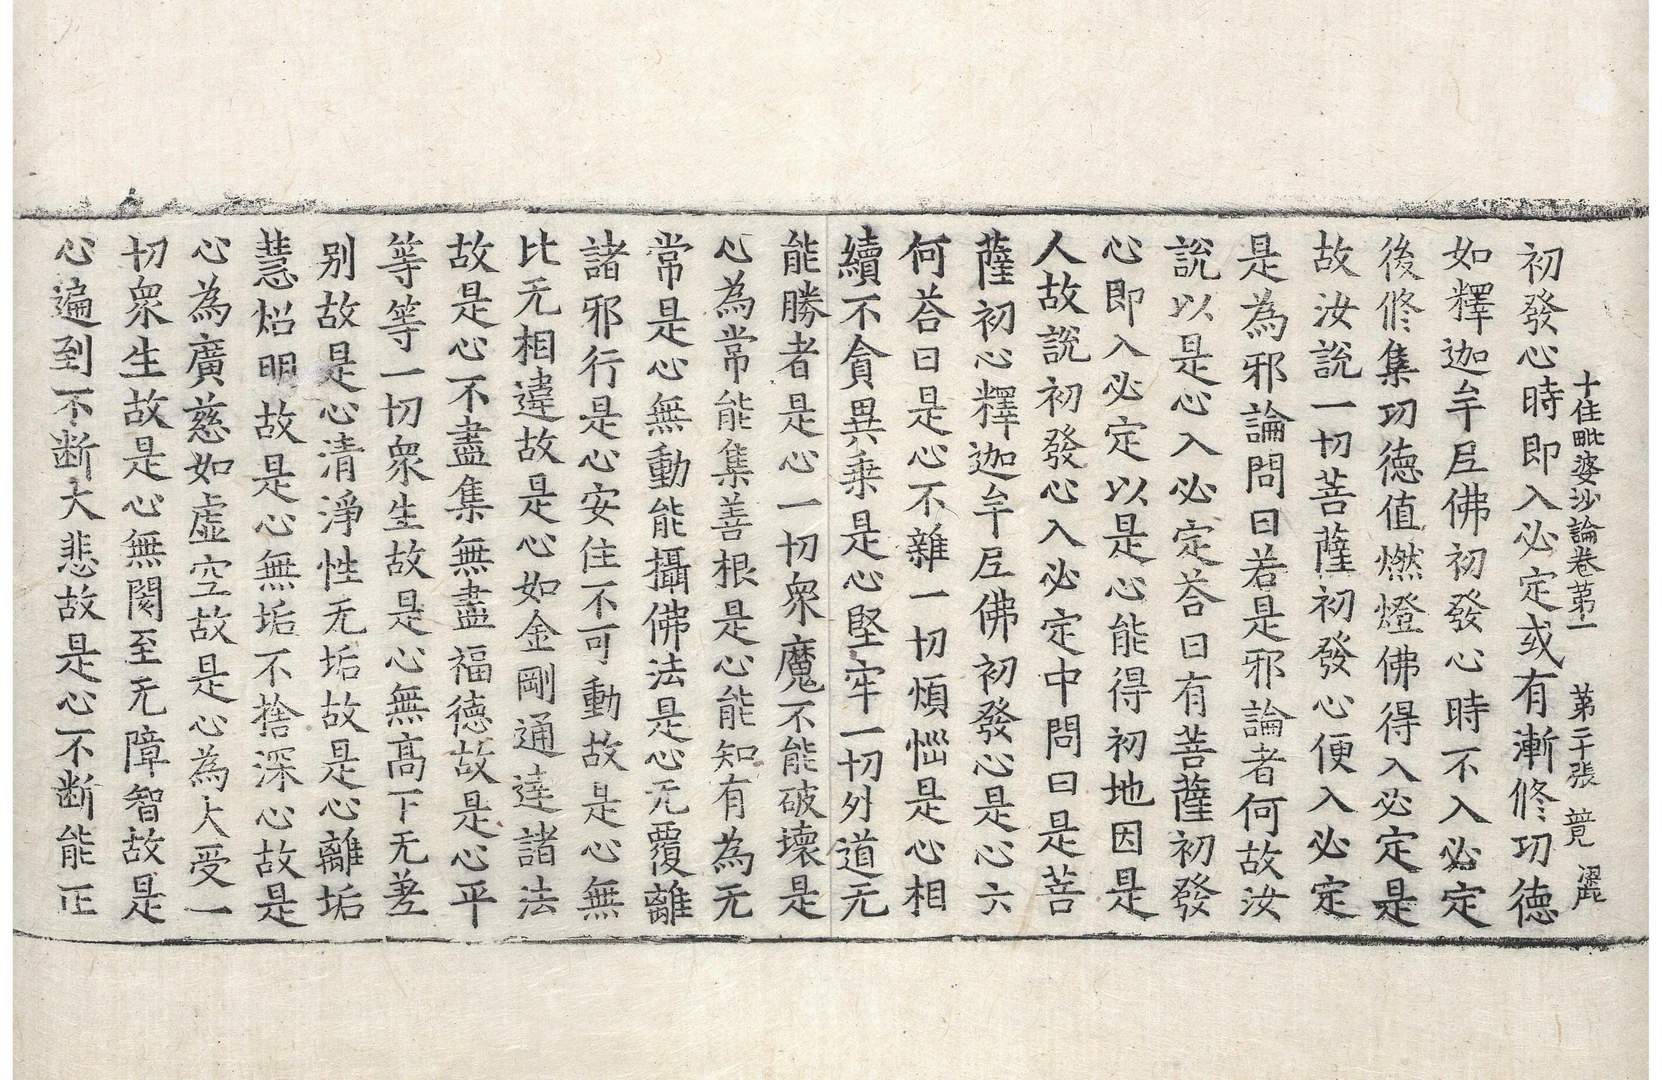 十住毗婆沙論卷第一　第二十張　覓
初發心時即入必定或有漸修功德
如釋迦牟𡰱佛初發心時不入必定
後修集功德值燃燈佛得入必定是
故汝說一切菩薩初發心便入必定
是為邪論問曰若是邪論者何故汝
說以是心入必定荅曰有菩薩初發
心即入必定以是心能得初地因是
人故說初發心入必定中問曰是菩
薩初心釋迦牟𡰱佛初發心是心六
何荅曰是心不雜一切煩惱是心相
續不貪異乘是心堅牢一切外道无
能勝者是心一切衆魔不能破壞是
心為常能集善根是心能知有為无
常是心無動能攝佛法是心无覆離
諸邪行是心安住不可動故是心無
比无相違故是心如金剛通達諸法
故是心不盡集無盡福德故是心平
等等一切衆生故是心無高下无差
別故是心清淨性无垢故是心離垢
慧炤明故是心無垢不捨深心故是
心為廣慈如虛空故是心為大受一
切衆生故是心無閡至无障智故是
心遍到不斷大悲故是心不斷能正